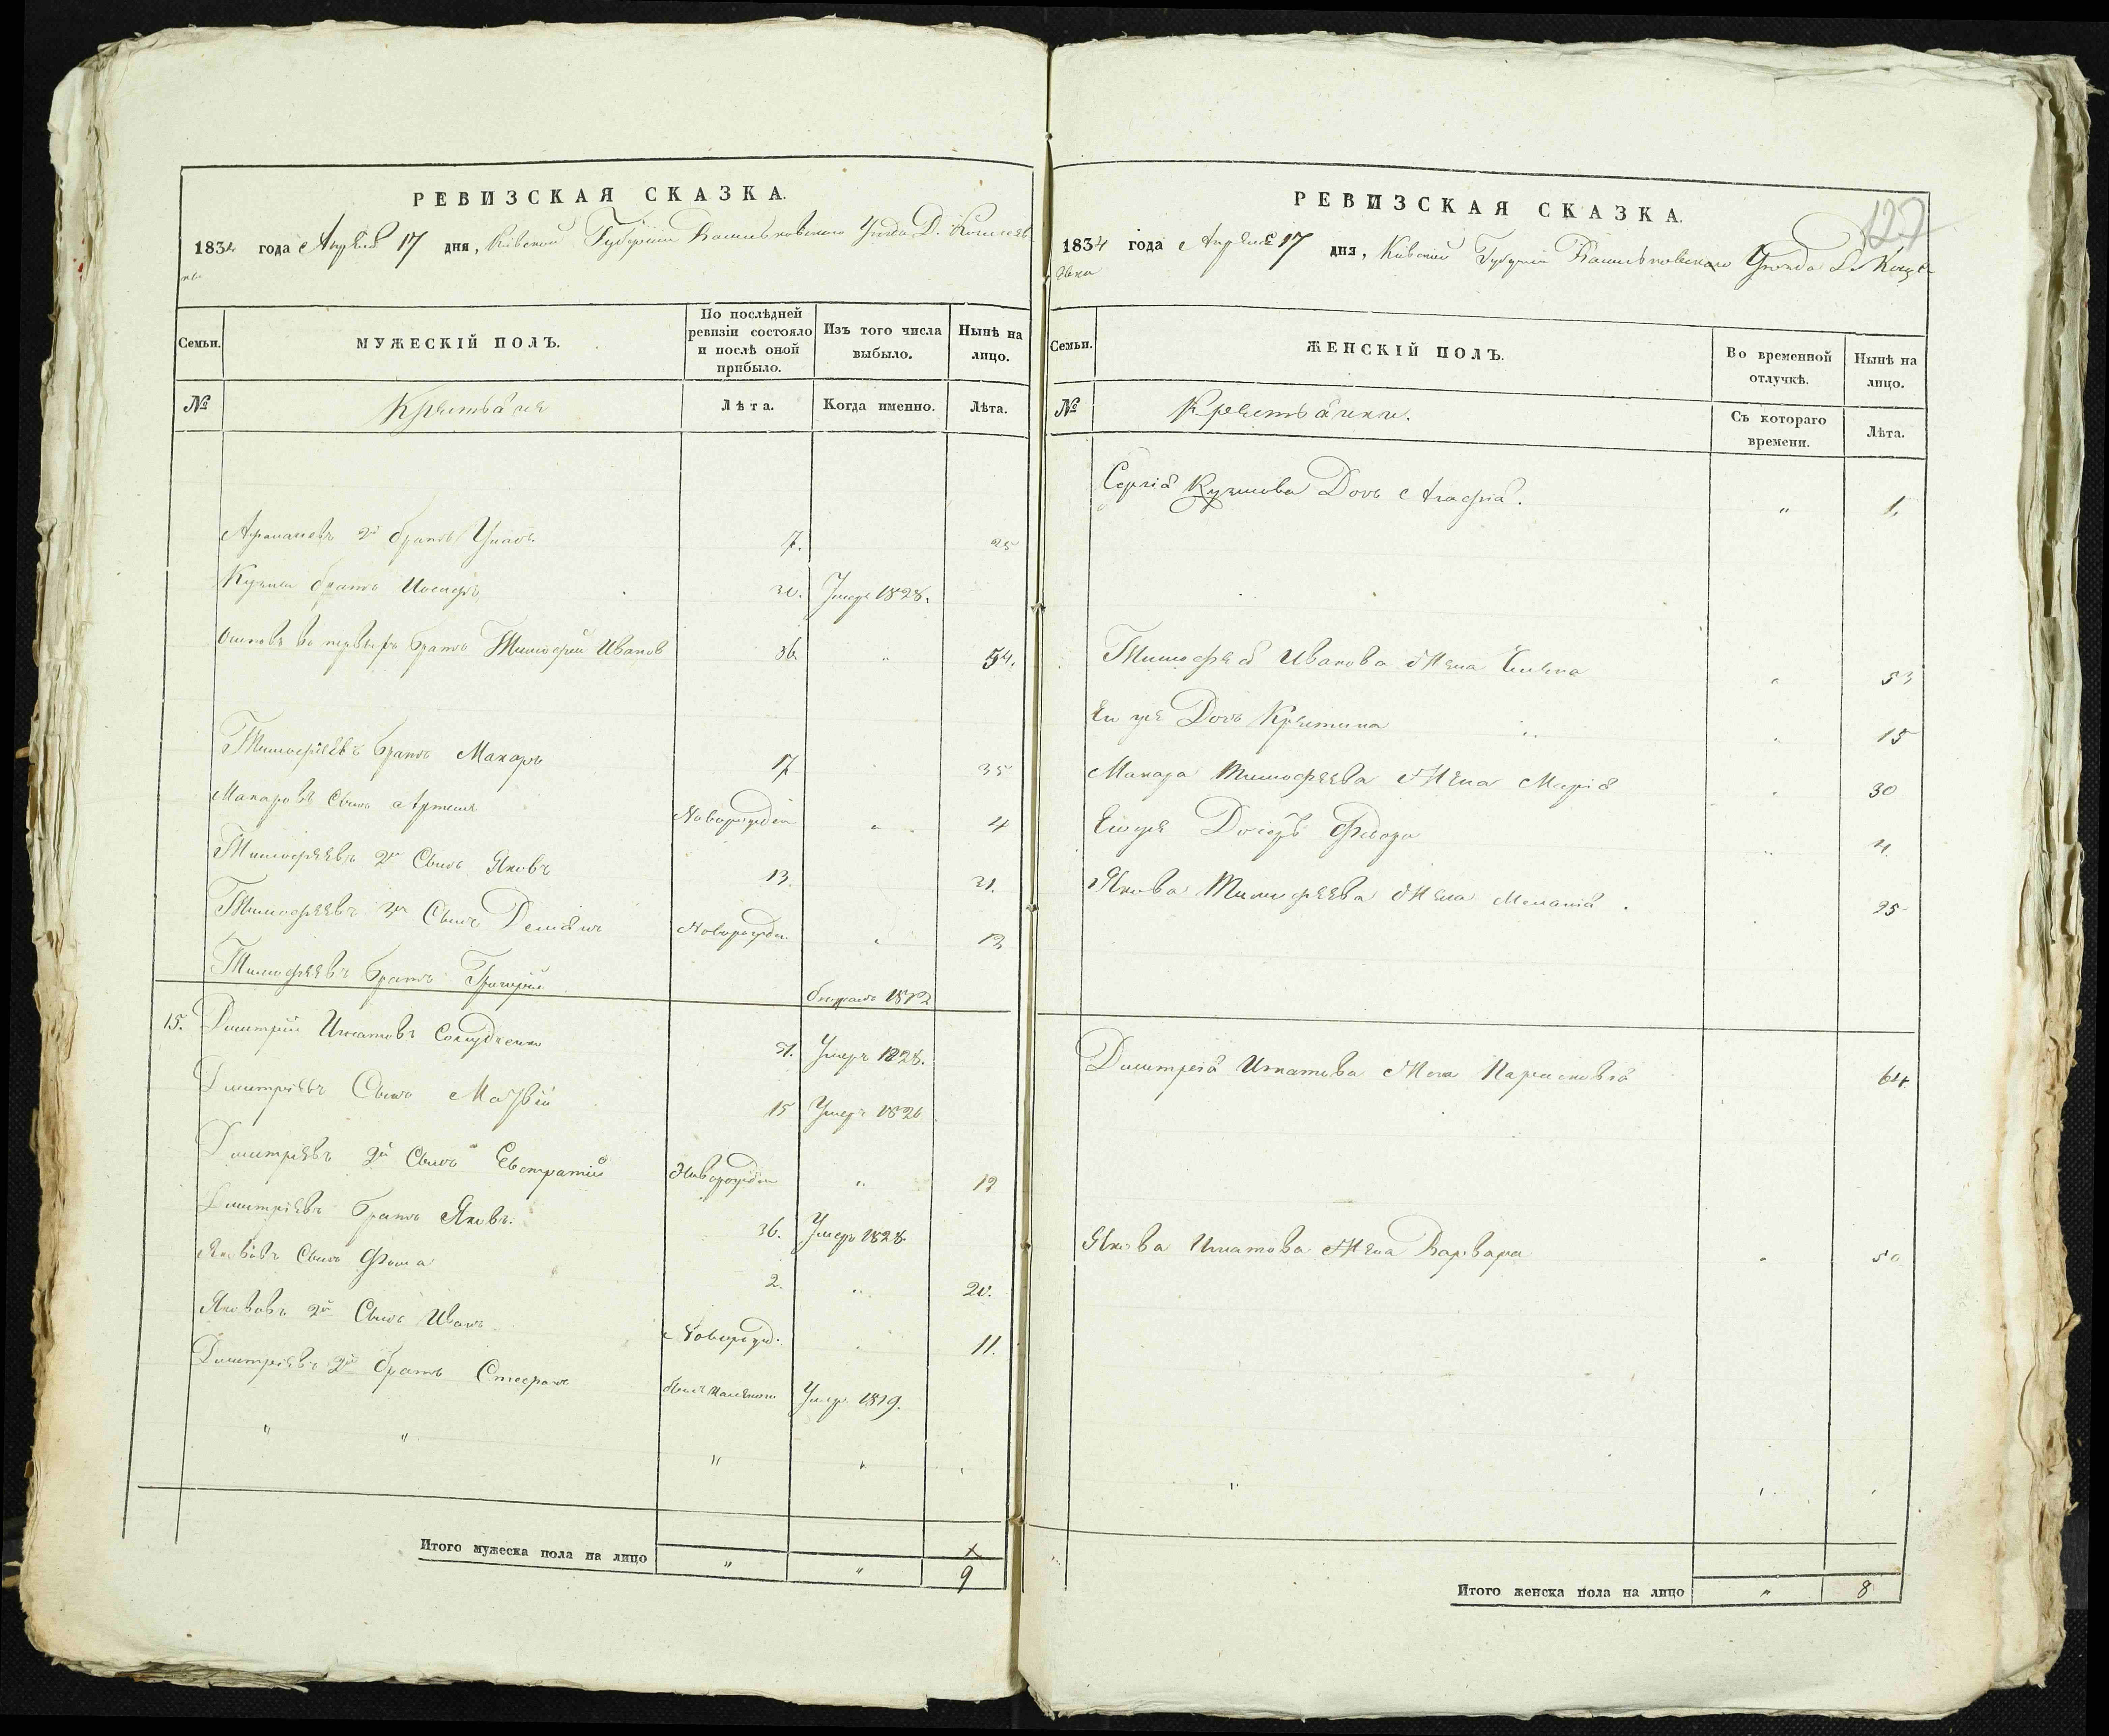 РЕВИЗСКАЯ СКАЗКА.
1834 года Апреля 17 дня, Кіевской Губерніи Васильковскаго Уезда Д.
Семьи.
МУЖЕСКІЙ ПОЛЪ.
По послѣдней ревизіи состояло и послѣ оной прибыло.
Изъ того числа выбыло.
Нынѣ на лицо.
№
Крестьяне
Лѣта.
Когда именно.
Лѣта.
2й братъ 7. 25
Кузьми братъ Иосифъ 30. Умеръ 1828.
братъ Тимофей Ивановъ 36 " 54.
Тимофеевъ братъ Макаръ 17 35
Макаровъ Сынъ Артемъ Новорожден " 4
Тимофеевъ 2й Сынъ Яковъ 13. 31.
Тимофеевъ 3й Сынъ Демьянъ Новорожден. " 12
Тимофеевъ братъ Григорій 1812
15. Дмитрій Игнатовъ 51. Умеръ 1828.
Дмитріевъ Сынъ Матвій 15 Умеръ 1826
Дмитріевъ 2й Сынъ Евстратій Новорожден " 12
Дмитріевъ братъ Яковъ. 36. Умеръ 1828.
Яковъ Сынъ Фома 2. " 20.
Яковъ 2й Сынъ Иванъ Новорожд. " 11.
Дмитріевъ 2й братъ Стефанъ Умеръ 1819.
" " " " "
Итого мужеска пола на лицо " " 9
127
РЕВИЗСКАЯ СКАЗКА.
1834 года Апреля 17 дня, Кіевской Губерніи Васильковскаго Уезда Д.
Семьи.
ЖЕНСКІЙ ПОЛЪ.
Во временной отлучкѣ.
Нынѣ на лицо.
№
Крестьянки.
Съ котораго времени.
Лѣта.
Сергія Кузмова Дочь Агафія. " 1.
Тимофея Иванова Жена Елена " 53
Ея же Дочь Кристина " 15
Макара Тимофеева Жена Марія " 30
Его же Дочерь Федора " 4.
Якова Тимофеева Жена Меланія. 25
Дмитрія Игнатова Жена Парасковія 64.
Якова Игнатова Жена Варвара " 50
" " "
Итого женска пола на лицо " 8